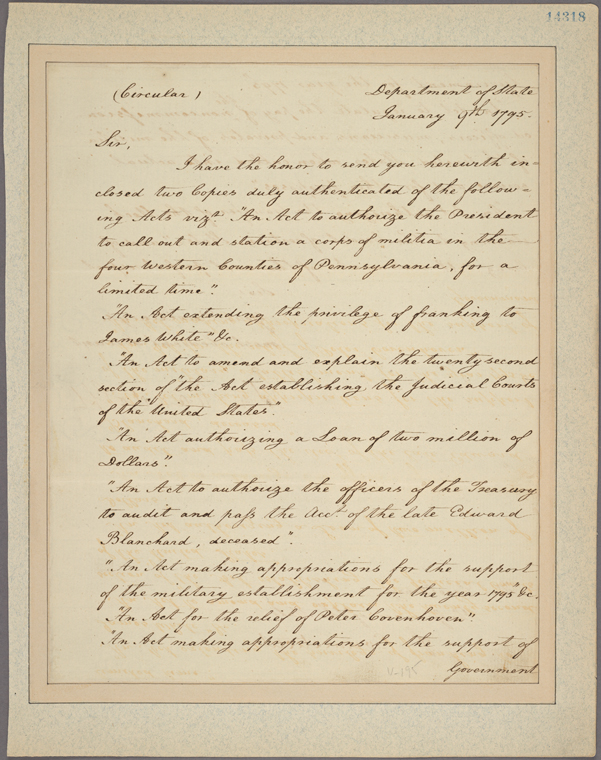 14318
(Circular)
Department of State
January 9th 1795.
Sir,
I have the honor to send you herewith in=
closed two Copies duly authenticated of the follow=
ing Acts vizt. "An Act to authorize the President
to call out and station a corps of militia in the
four Western Counties of Pennsylvania, for a
limited time"
"An Act extending the privilege of franking to
James White" &c.
"An Act to amend and explain the twenty second
section of "the Act establishing the Judicial Courts
of the United States".
"An Act authorizing a Loan of two million of
Dollars".
"An Act to authorize the officers of the Treasury
to audit and pass the Acct. of the late Edward
Blanchard, deceased".
"An Act making appropriations for the support
of the military establishment for the year 1795" &c.
"An Act for the relief of Peter Covenhoven".
"An Act making appropriations for the support of
Government